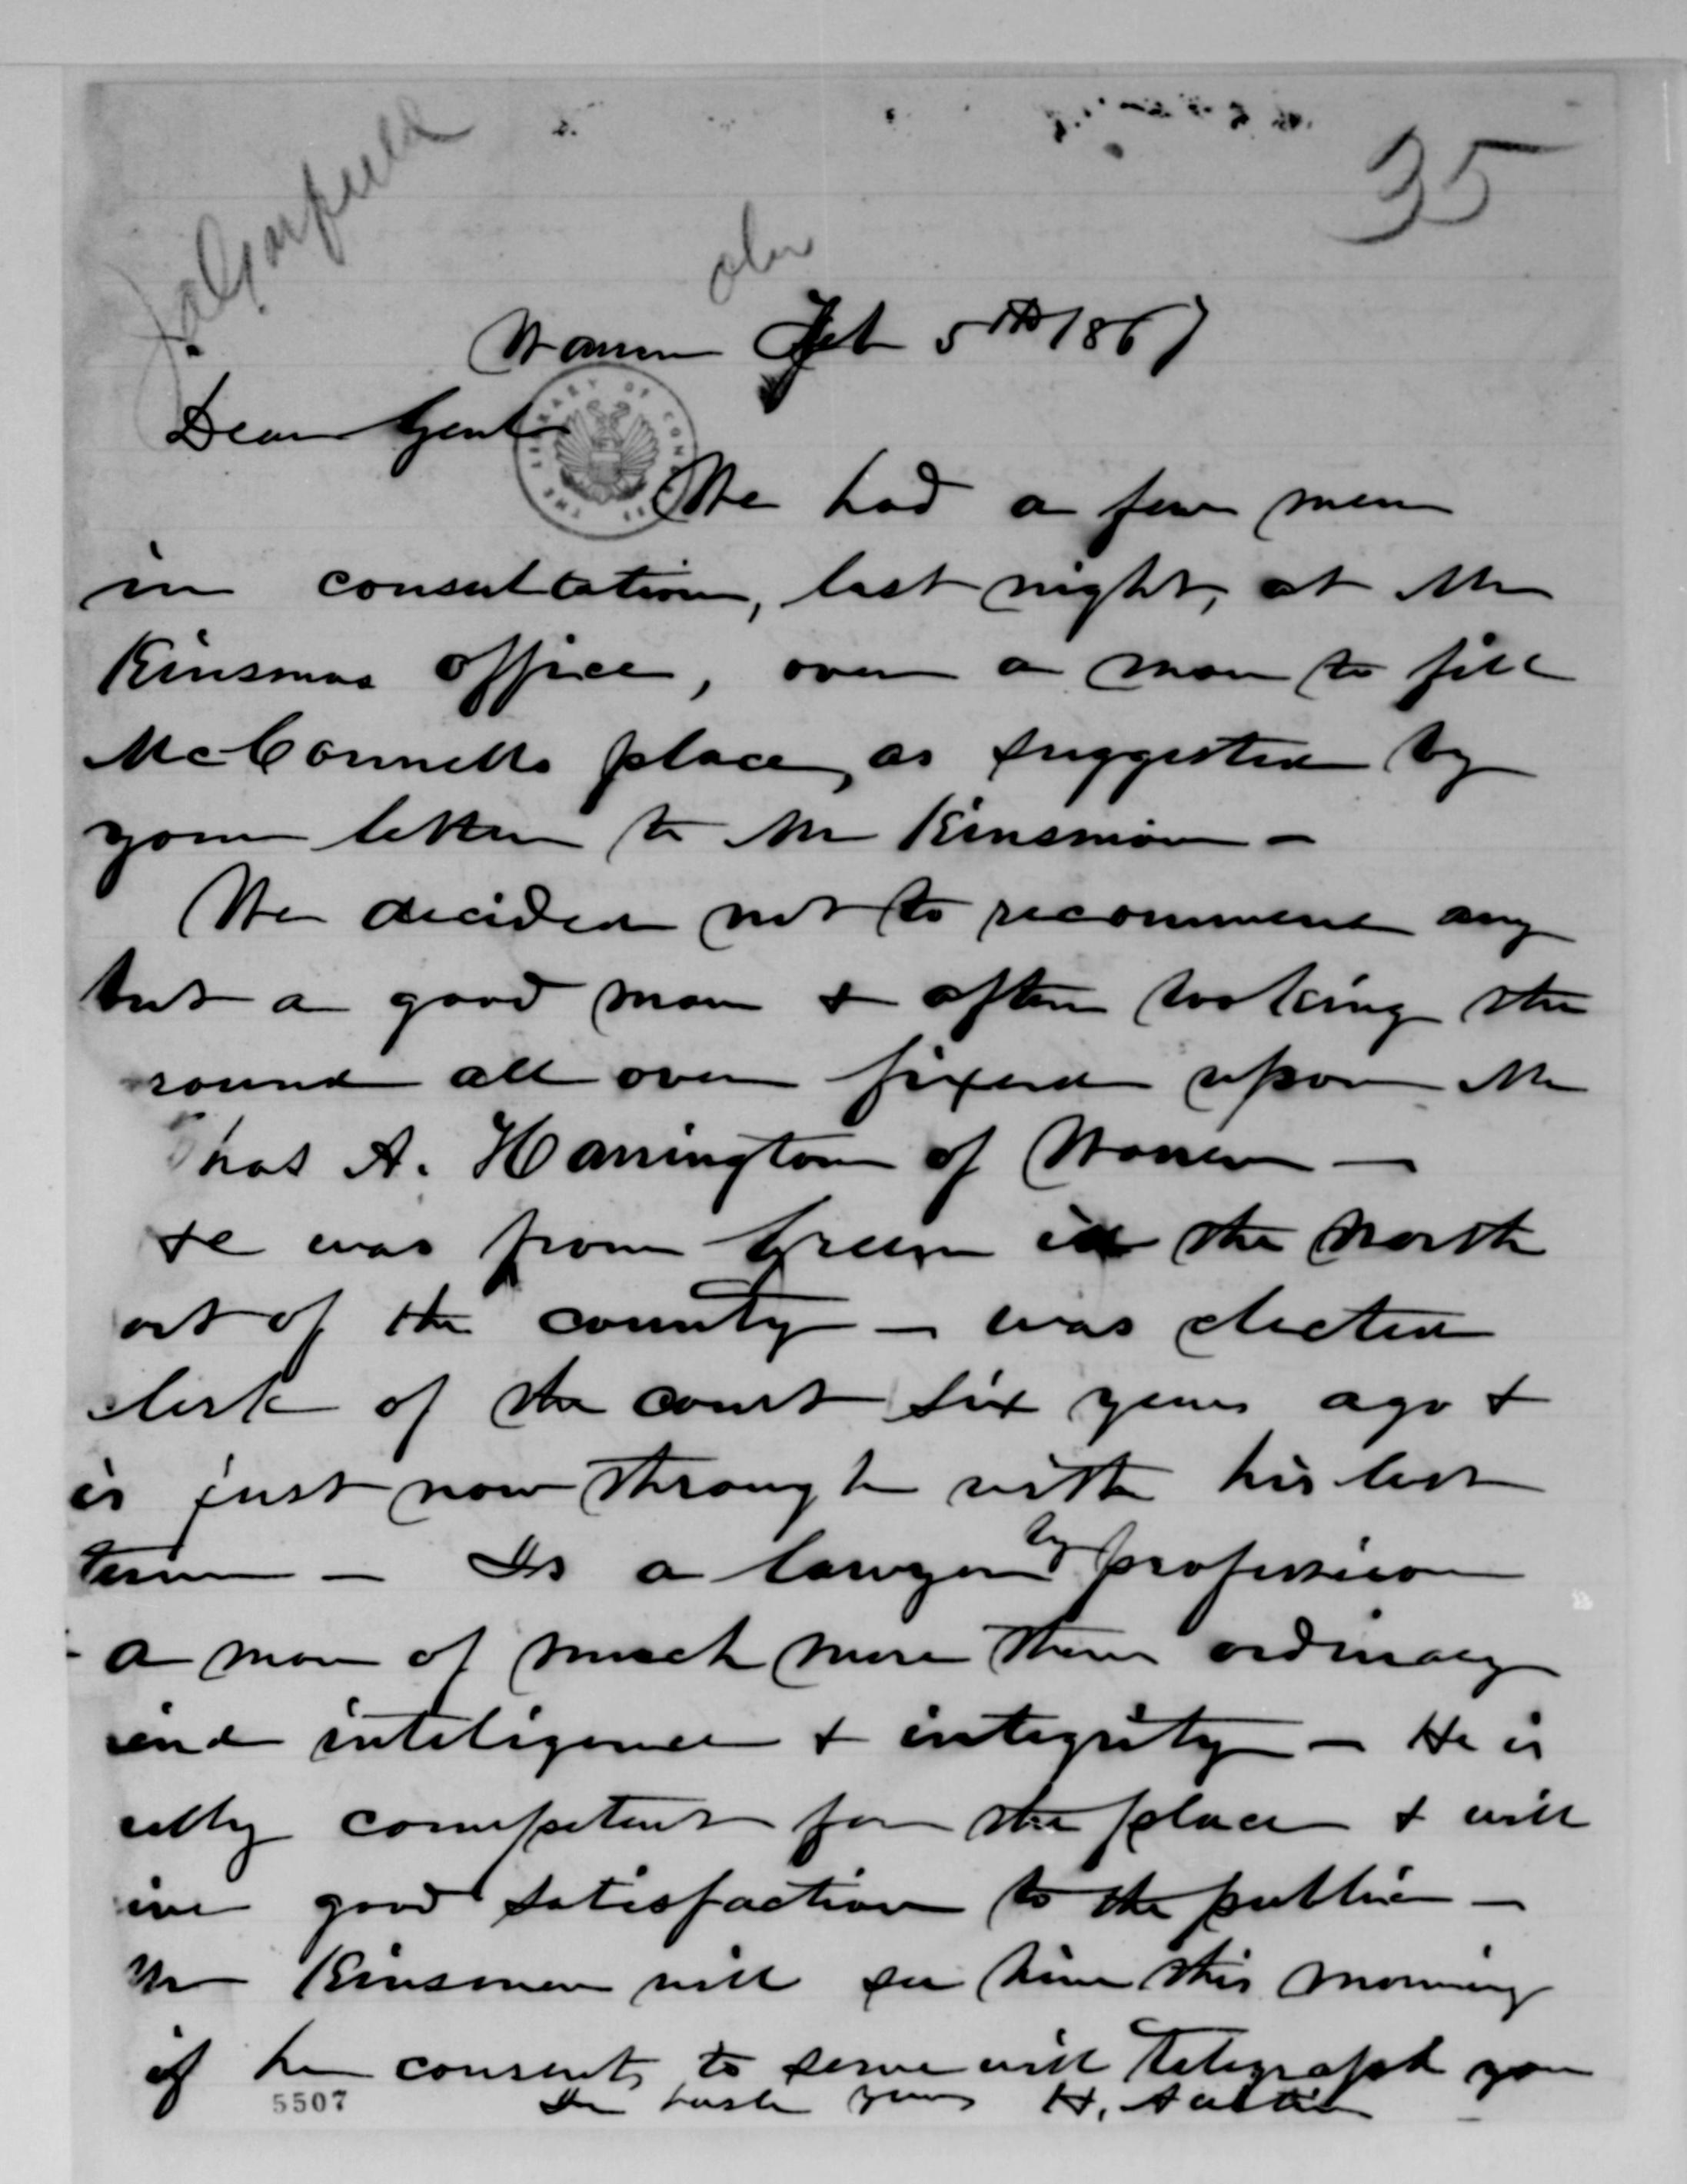 J A Garfield
35
ohio
Warren Feb 5th 1867
Dear Genl
THE LIBRARY OF CONGRESS
We had a few men
in consultation, last night, at Mr
Kinsmans office, over a man to fill
McConnells place, as suggested by
your letter to Mr Kinsman -
We decided not to recommend any
but a good man & after looking the
round all over fixed upon Mr
Thos A. Harrington of Warren -
He was from Green in the North
art of the county - was elected
clerk of the court six years ago &
is just now through with his last
term - Is a lawyer by profession
- a man of much more than ordinary
ind inteligence & integrity - He is
ully competent for the place & will
ive good satisfaction to the public -
Mr Kinsman will see him this morning
if he consents to serve will Telegraph you
In haste yours H. Austin
5507